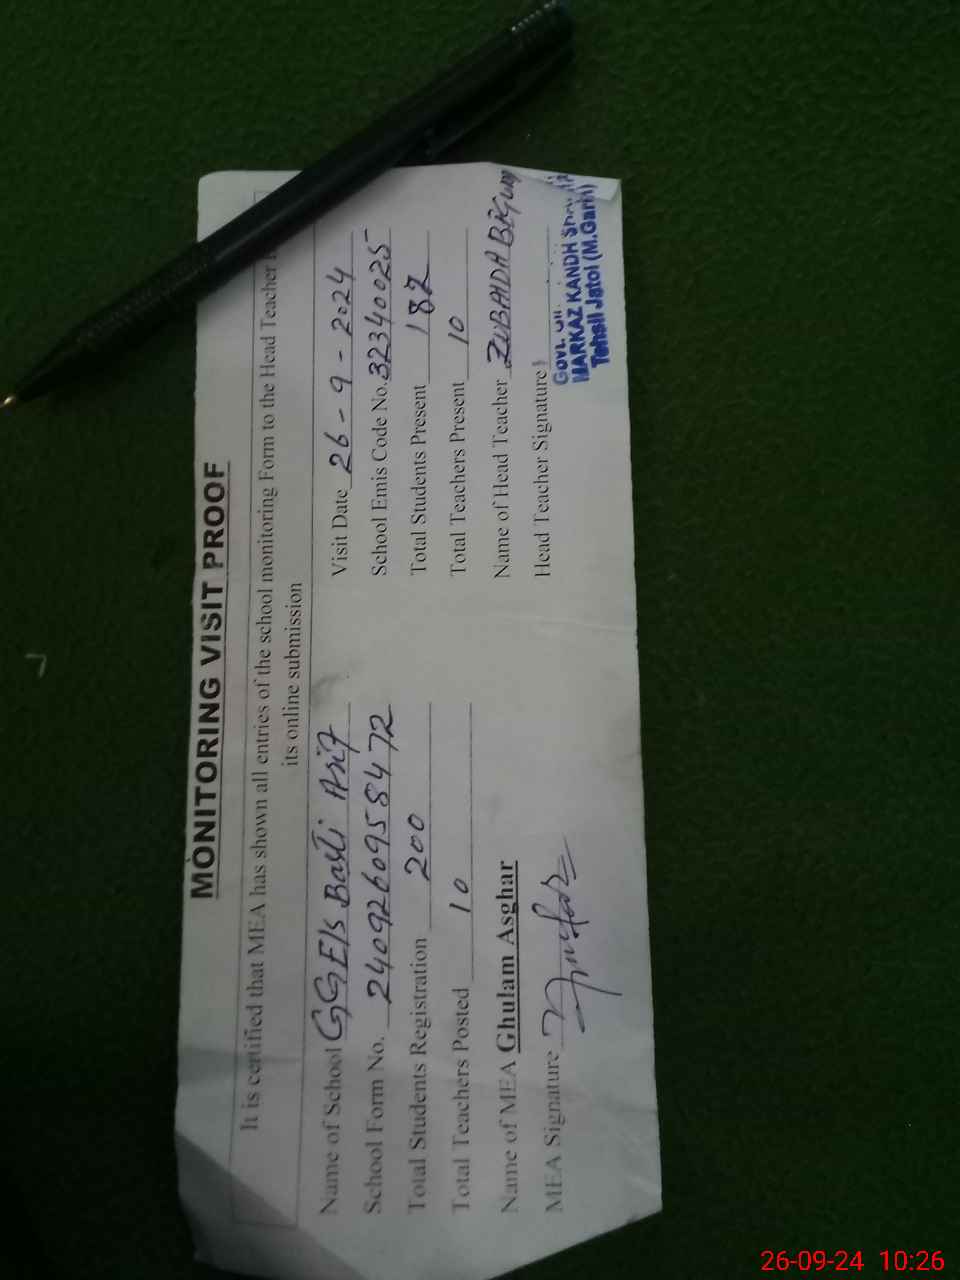 MONITORING VISIT PROOF
It is certified that MEA has shown all entries of the school monitoring Form to the Head Teacher
its online submission
Name of School GGE/S Basti Arif
Visit Date 26-9-2024
School Form No. 2409260958472
School Emis Code No. 32340025
Total Students Registration 200
Total Students Present 182
Total Teachers Posted 10
Total Teachers Present 10
Name of MEA Ghulam Asghar
Name of Head Teacher ZUBAIDA BiGum
MEA Signature
Head Teacher Signature
Govt.
MARKAZ KANDH
Tehsil Jatoi (M.Garh)
26-09-24 10:26